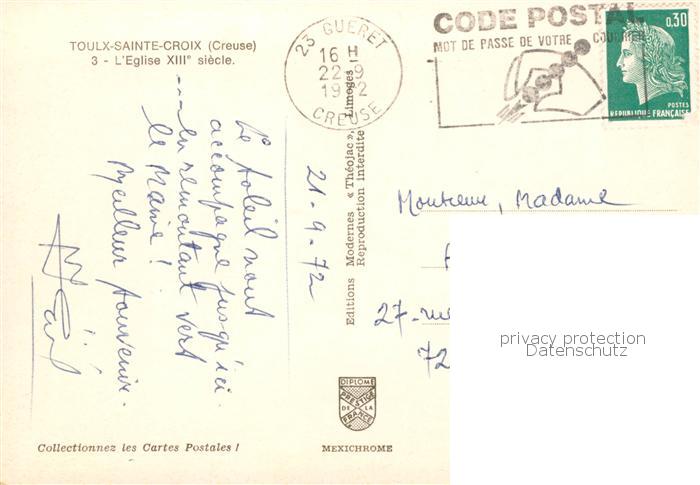 TOULX-SAINTE-CROIX (Creuse)
3 - L'Eglise XIIIe siècle.
23 GUERET
16 H
22-9
1972
CREUSE
CODE POSTAL
MOT DE PASSE DE VOTRE COURRIER
0,30
POSTES
REPUBLIQUE FRANÇAISE
21-9-72
Le soleil nous
accompagne jusqu'ici.
... en remontant vers
le Maine!
Meilleur souvenir.
Editions Modernes « Théojac », Limoges
Reproduction interdite
Monsieur, Madame
27- rue
72
privacy protection
Datenschutz
DIPLOME
PRESTIGE
DE LA
FRANCE
Collectionnez les Cartes Postales !
MEXICHROME